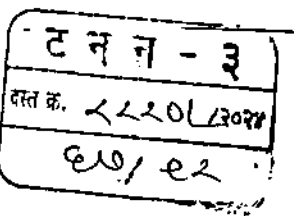 ट न न - ३
दस्त क्र. २२२०८/२०२४
६७/९२